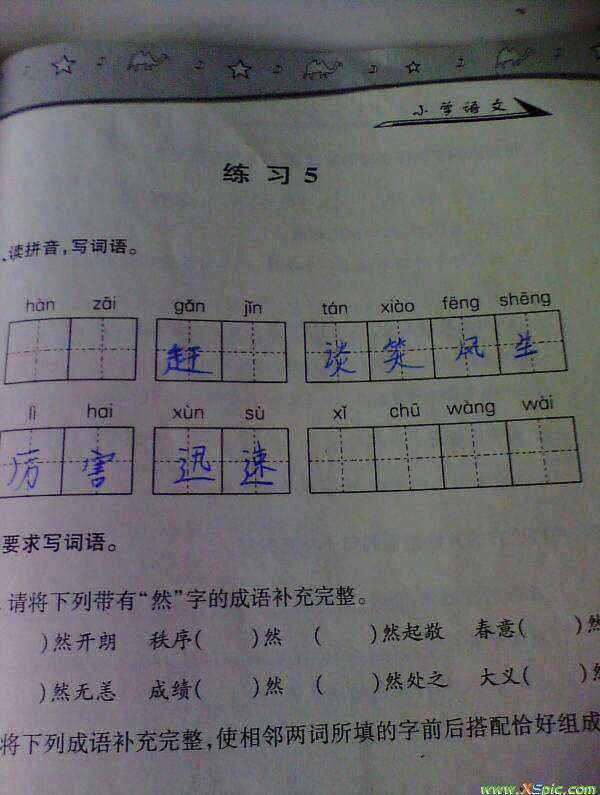 小学语文
练习5
、读拼音,写词语。
hàn zāi gǎn jǐn tán xiào fēng shēng
赶 谈 笑 风 生
lì hai xùn sù xǐ chū wàng wài
厉 害 迅 速
要求写词语。
.请将下列带有“然”字的成语补充完整。
)然开朗 秩序( )然 ( )然起敬 春意( )然
)然无恙 成绩( )然 ( )然处之 大义( )然
将下列成语补充完整,使相邻两词所填的字前后搭配恰好组成
www.XSpic.com